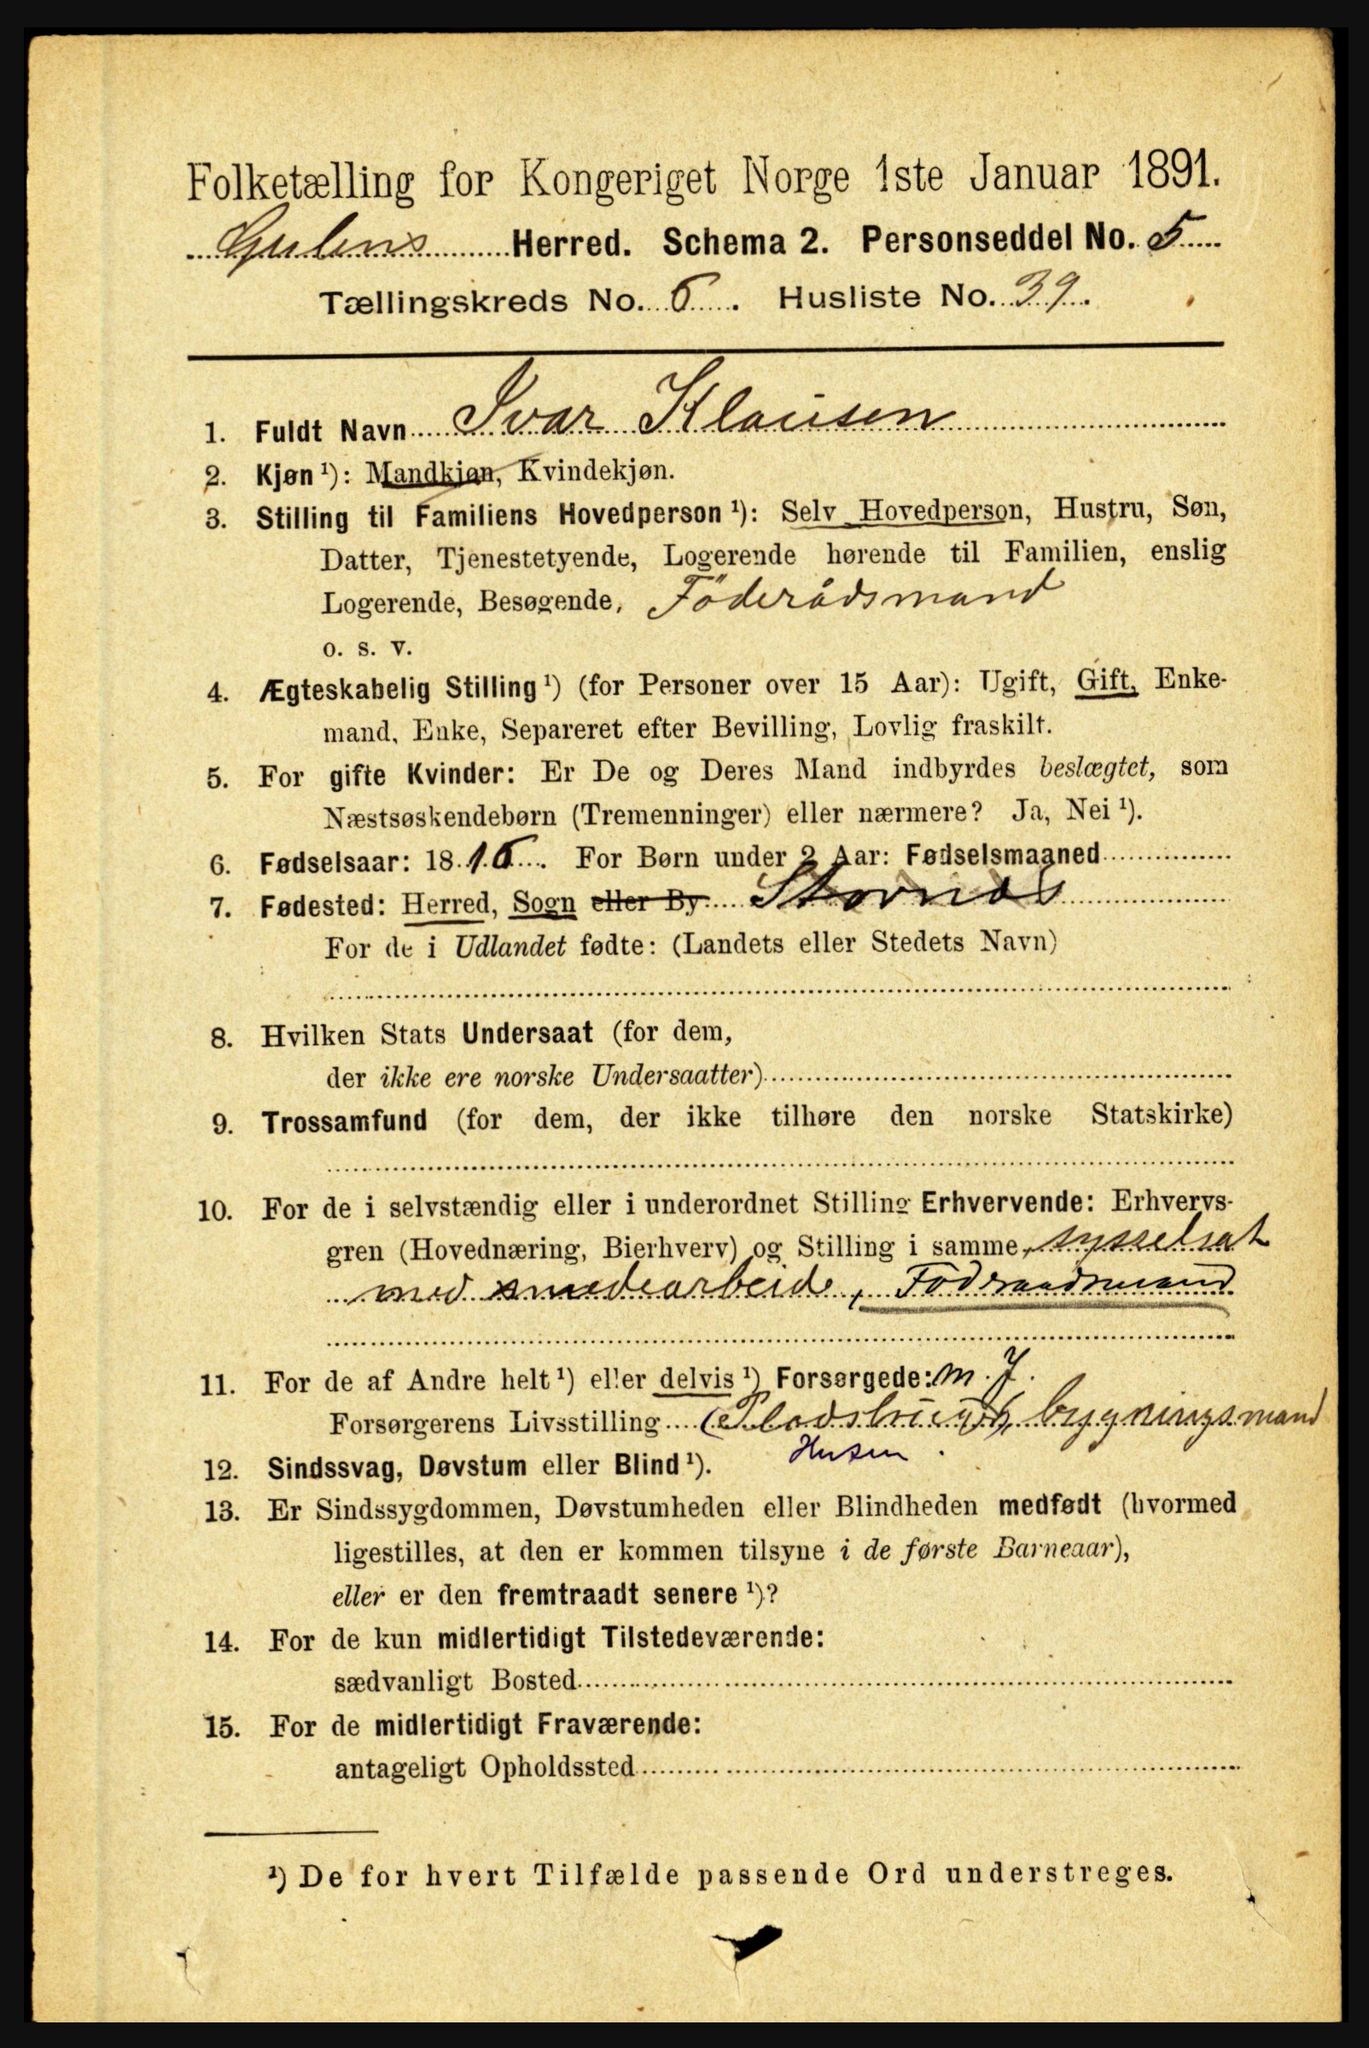 Folketælling for Kongeriget Norge 1ste Januar 1891.
Gulens Herred. Schema 2. Personseddel No. 5
Tællingskreds No. 6. Husliste No. 39.
1. Fuldt Navn Ivar Klausen
2. Kjøn¹): Mandkjøn, Kvindekjøn.
3. Stilling til Familiens Hovedperson¹): Selv Hovedperson, Hustru, Søn,
Datter, Tjenestetyende, Logerende hørende til Familien, enslig
Logerende, Besøgende, Föderådsmand
o. s. v.
4. Ægteskabelig Stilling¹) (for Personer over 15 Aar): Ugift, Gift, Enke-
mand, Enke, Separeret efter Bevilling, Lovlig fraskilt.
5. For gifte Kvinder: Er De og Deres Mand indbyrdes beslægtet, som
Næstsøskendebørn (Tremenninger) eller nærmere? Ja, Nei¹).
6. Fødselsaar: 1816. For Børn under 2 Aar: Fødselsmaaned
7. Fødested: Herred, Sogn eller By
For de i Udlandet fødte: (Landets eller Stedets Navn)
8. Hvilken Stats Undersaat (for dem,
der ikke ere norske Undersaatter)
9. Trossamfund (for dem, der ikke tilhøre den norske Statskirke)
10. For de i selvstændig eller i underordnet Stilling Erhvervende: Erhvervs-
gren (Hovednæring, Bierhverv) og Stilling i samme, sysselsat
med smedearbeide, Födraadsmand
11. For de af Andre helt¹) eller delvis¹) Forsørgede: m. J.
Forsørgerens Livsstilling (Pladsbrug), bygningsmand
12. Sindssvag, Døvstum eller Blind¹). Husm.
13. Er Sindssygdommen, Døvstumheden eller Blindheden medfødt (hvormed
ligestilles, at den er kommen tilsyne i de første Barneaar),
eller er den fremtraadt senere¹)?
14. For de kun midlertidigt Tilstedeværende:
sædvanligt Bosted
15. For de midlertidigt Fraværende:
antageligt Opholdssted
¹) De for hvert Tilfælde passende Ord understreges.